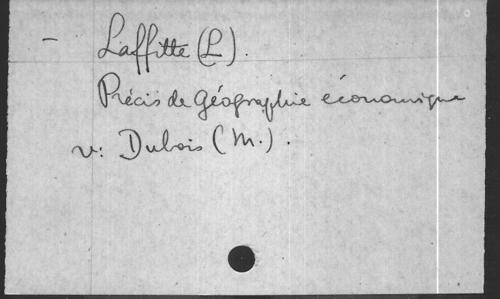 - Laffitte (L).
Précis de Géographie économique
v: Dubois (M.).